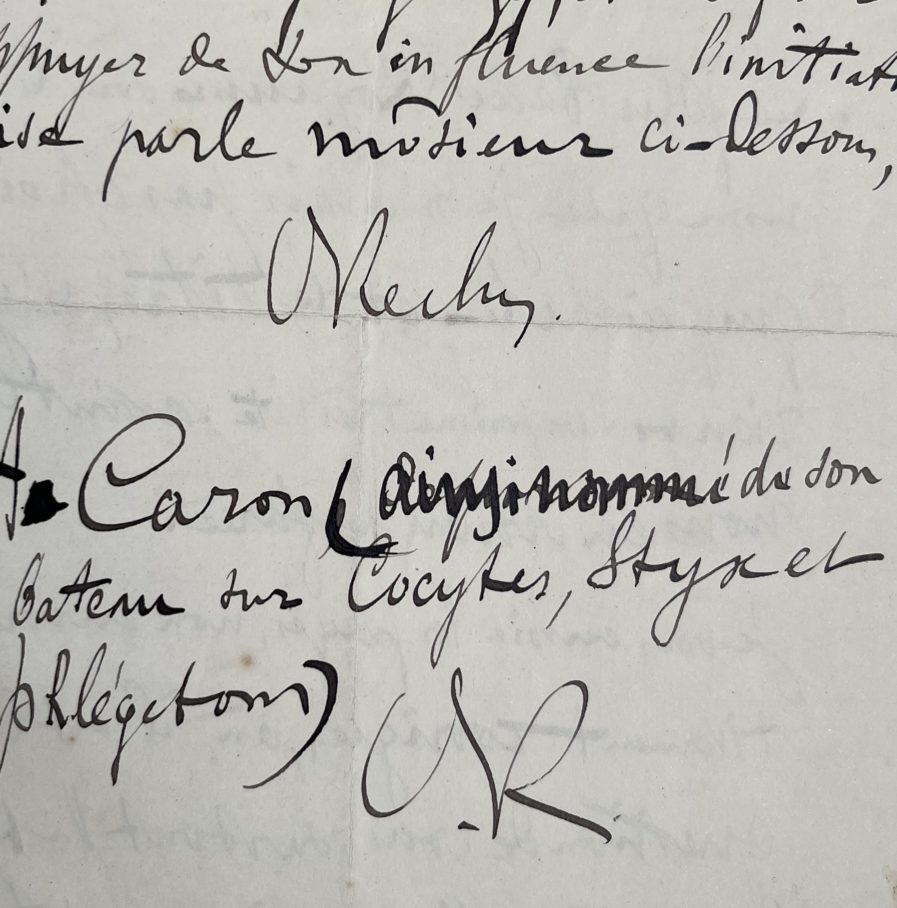 ppuyer de son influence l'initiati
ise par le môsieur ci-dessous,
OReclus.
A Caron (ainsi nommé de son
bateau sur Cocytes, Styx et
phlégetons)
OR